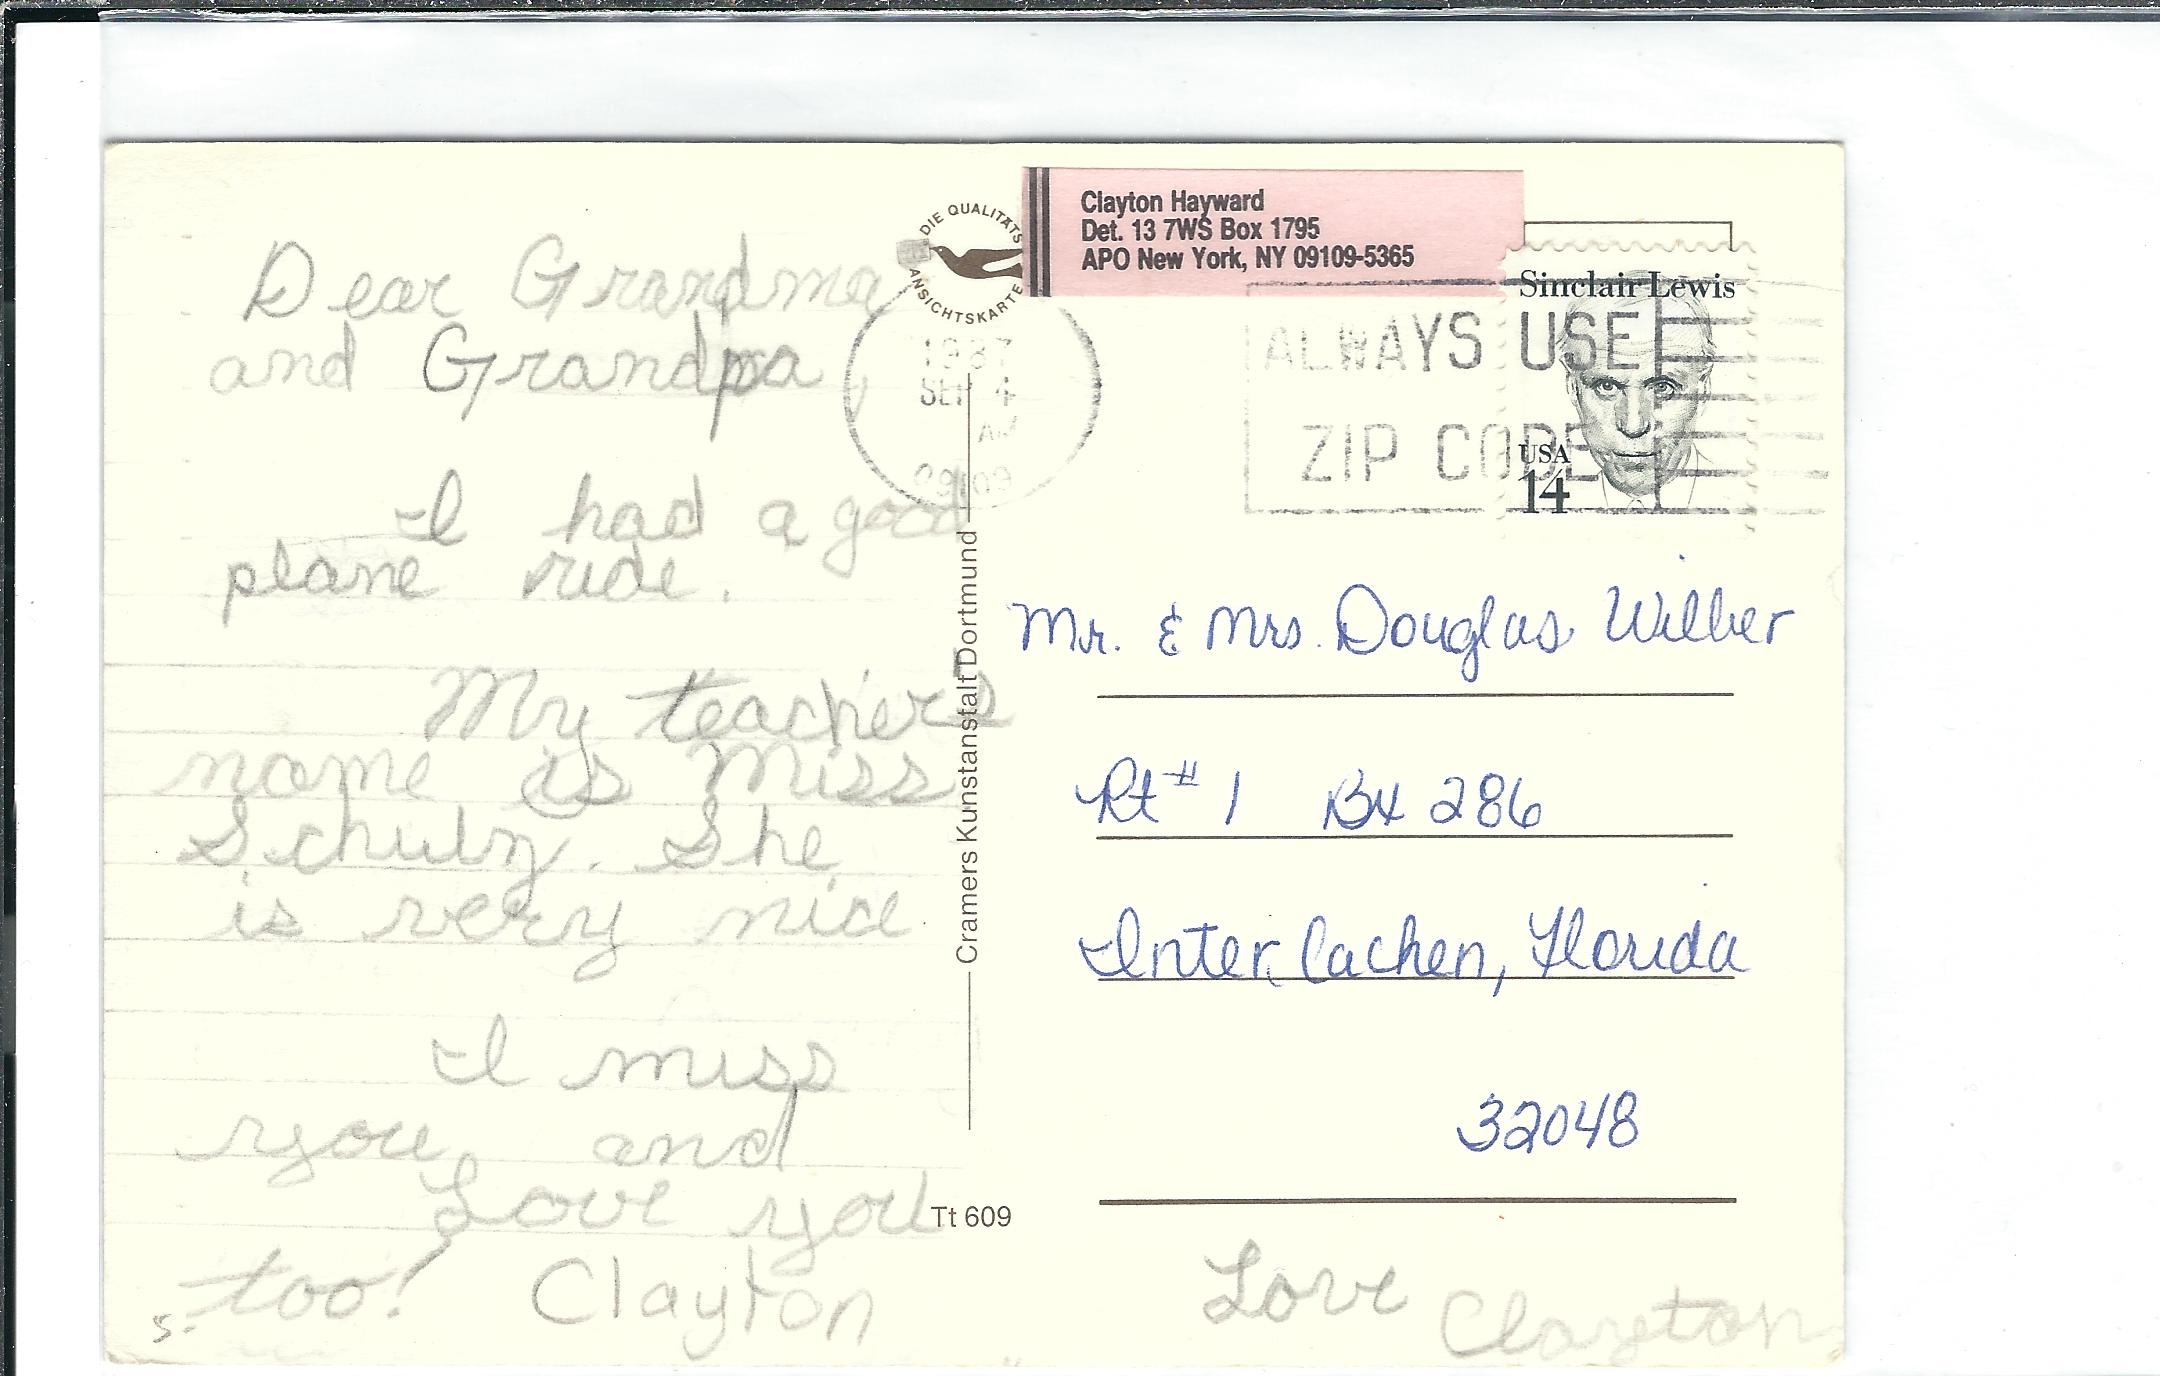 Dear Grandma
and Grandpa,
I had a good
plane ride.
My teacher's
name is Miss
Schulz. She
is very nice
I miss
you and
Love you
too! Clayton
5-
DIE QUALITÄTS
ANSICHTSKARTE
Cramers Kunstanstalt Dortmund
Tt 609
Clayton Hayward
Det. 13 7WS Box 1795
APO New York, NY 09109-5365
1987
SEP 4
AM
09109
ALWAYS USE
ZIP CODE
Sinclair Lewis
USA
14
Mr. & Mrs. Douglas Wilber
Rt # 1 Bx 286
Inter Lachen, Florida
32048
Love Clayton